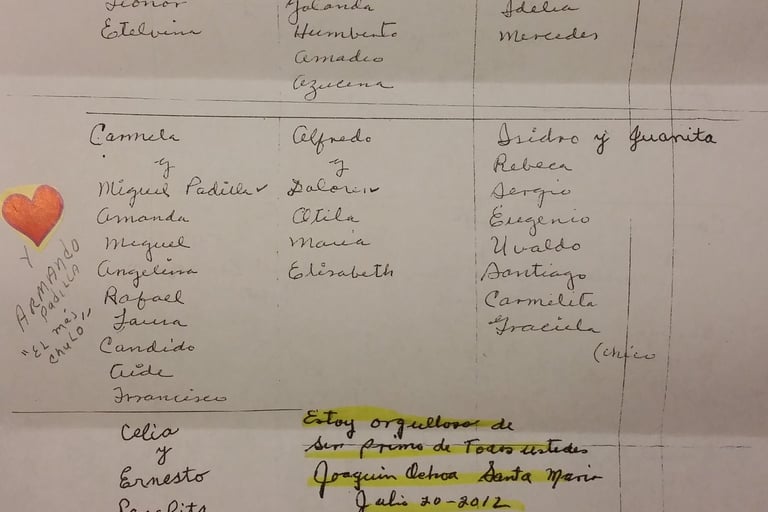 Leonor
Etelvina
Yolanda
Humberto
Amadeo
Azucena
Idelia
Mercedes
Carmela
y
Miguel Padilla ✓
Amanda
Miguel
Angelina
Rafael
Laura
Candido
Aide
Francisco
Y
ARMANDO
PADILLA
"EL MÁS
CHULO"
Alfredo
y
Dolores ✓
Otila
Maria
Elisabeth
Isidro y Juanita
Rebeca
Sergio
Eugenio
Uvaldo
Santiago
Carmelita
Graciela
(Chico
Celia
y
Ernesto
Estoy orgulloso de
ser primo de Todos ustedes
Joaquin Ochoa Santa Maria
Julio 20-2012